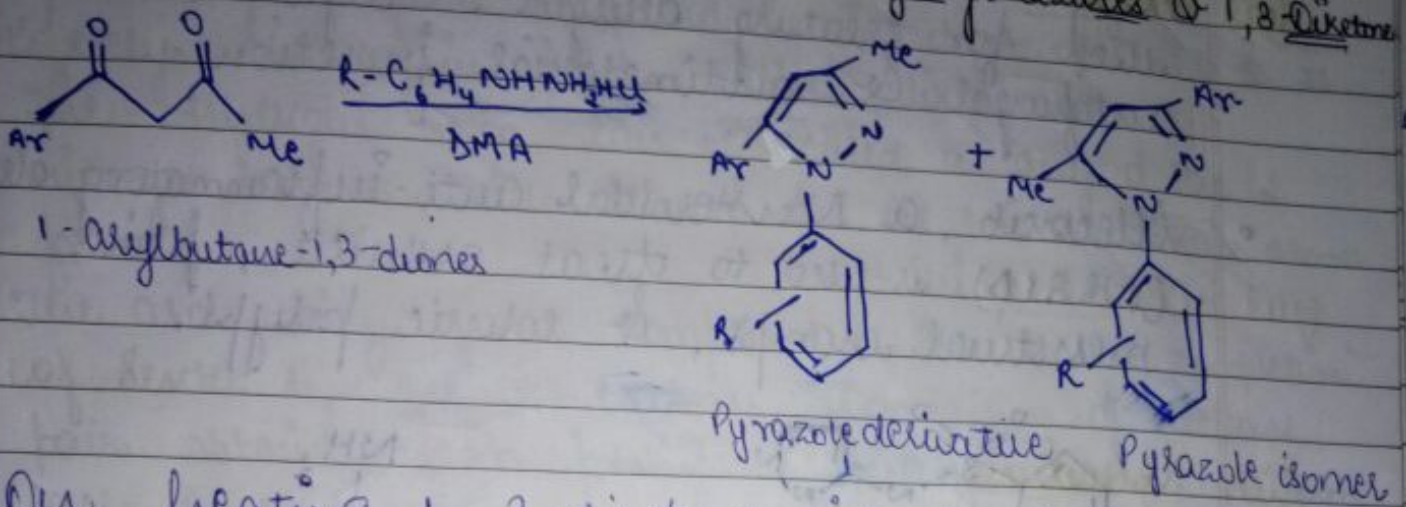 1,3-Diketone
O O Me
R-C6H4NHNH2HCl Ar
Ar Me DMA Ar N N + Me N N
1-arylbutane-1,3-diones
R R
Pyrazole derivative Pyrazole isomer